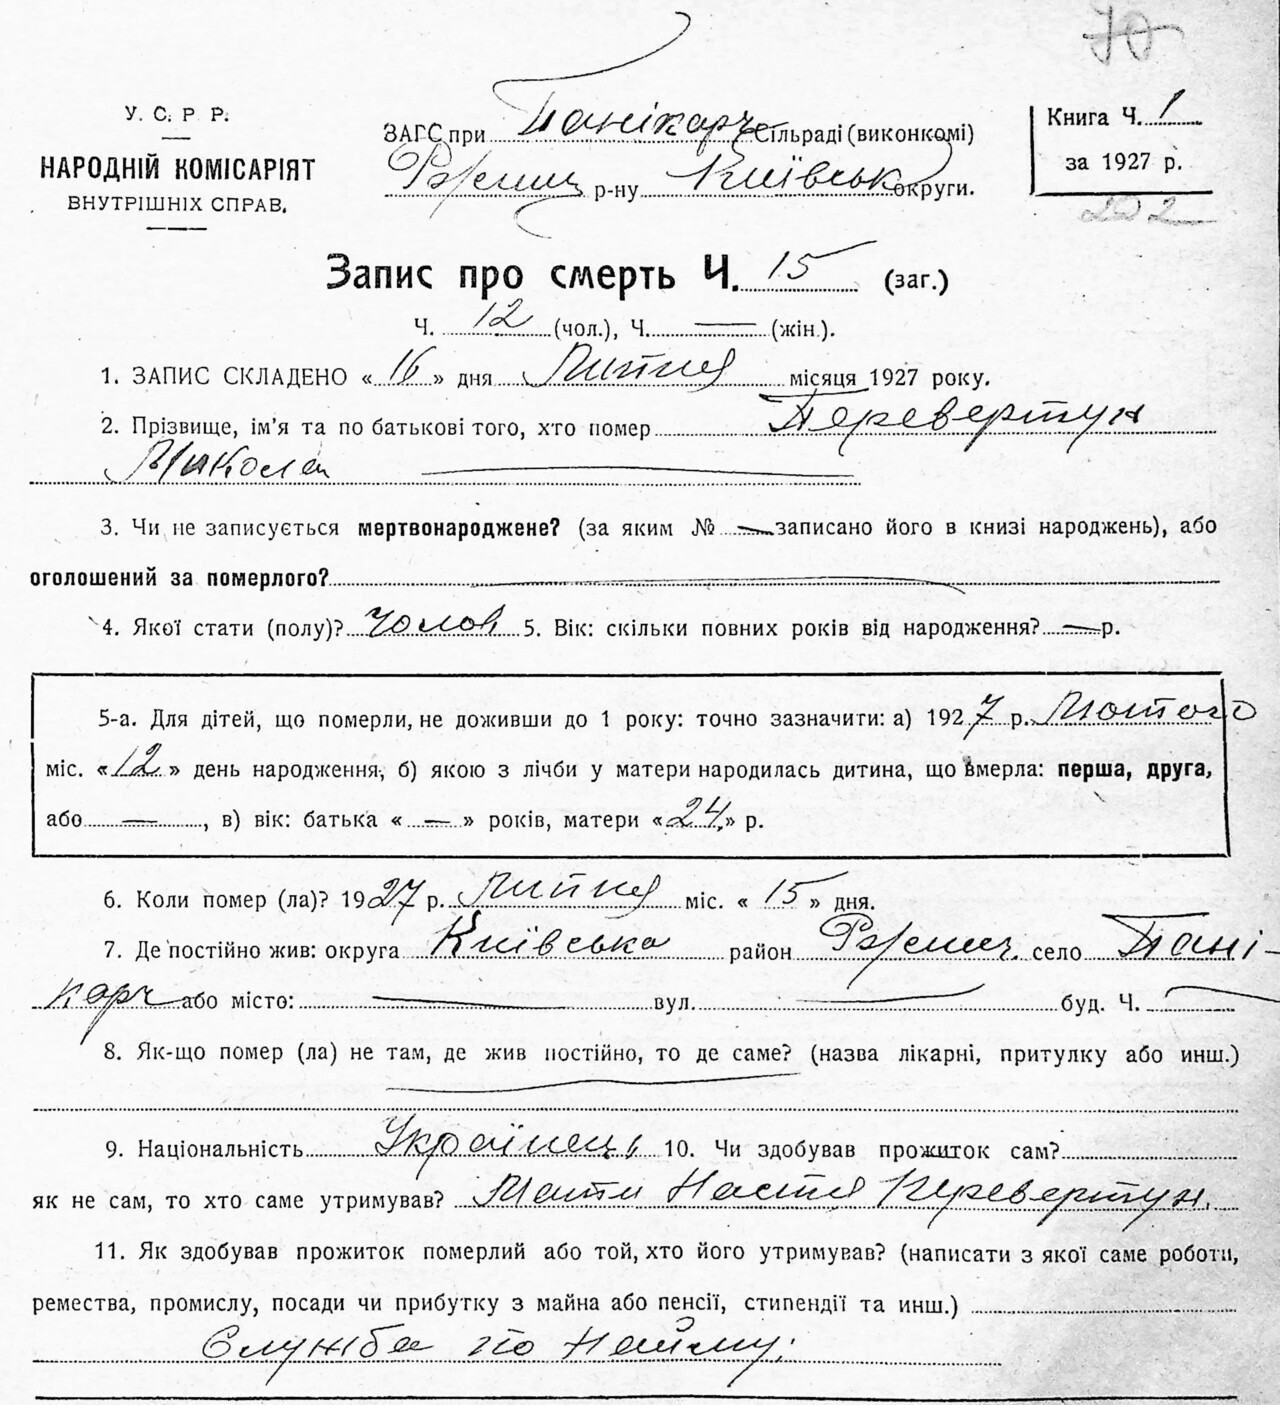 70
У. С. Р. Р.
НАРОДНІЙ КОМІСАРІЯТ
ВНУТРІШНІХ СПРАВ.
ЗАГС при Панікарч. Сільраді (виконкомі)
Ржищ р-ну Київськ округи.
Книга Ч. 1
за 1927 р.
202
Запис про смерть Ч. 15 (заг.)
Ч. 12 (чол.), Ч. — (жін.).
1. ЗАПИС СКЛАДЕНО «16» дня Липня місяця 1927 року.
2. Прізвище, ім'я та по батькові того, хто помер Перевертун
Микола
3. Чи не записується мертвонароджене? (за яким № — записано його в книзі народжень), або
оголошений за померлого? —
4. Якої стати (полу)? Чолов. 5. Вік: скільки повних років від народження? — р.
5-а. Для дітей, що померли, не доживши до 1 року: точно зазначити: а) 1927 р. Лютого
міс. «12» день народження, б) якою з лічби у матери народилась дитина, що вмерла: перша, друга,
або —, в) вік: батька «—» років, матери «24» р.
6. Коли помер (ла)? 1927 р. Липня міс. «15» дня.
7. Де постійно жив: округа Київська район Ржищ. село Пані-
карч або місто: — вул. — буд. Ч. —
8. Як-що помер (ла) не там, де жив постійно, то де саме? (назва лікарні, притулку або инш.)
—
9. Національність Українець 10. Чи здобував прожиток сам?
як не сам, то хто саме утримував? Мати Настя Перевертун.
11. Як здобував прожиток померлий або той, хто його утримував? (написати з якої саме роботи,
ремества, промислу, посади чи прибутку з майна або пенсії, стипендії та инш.)
Служба по Найму;